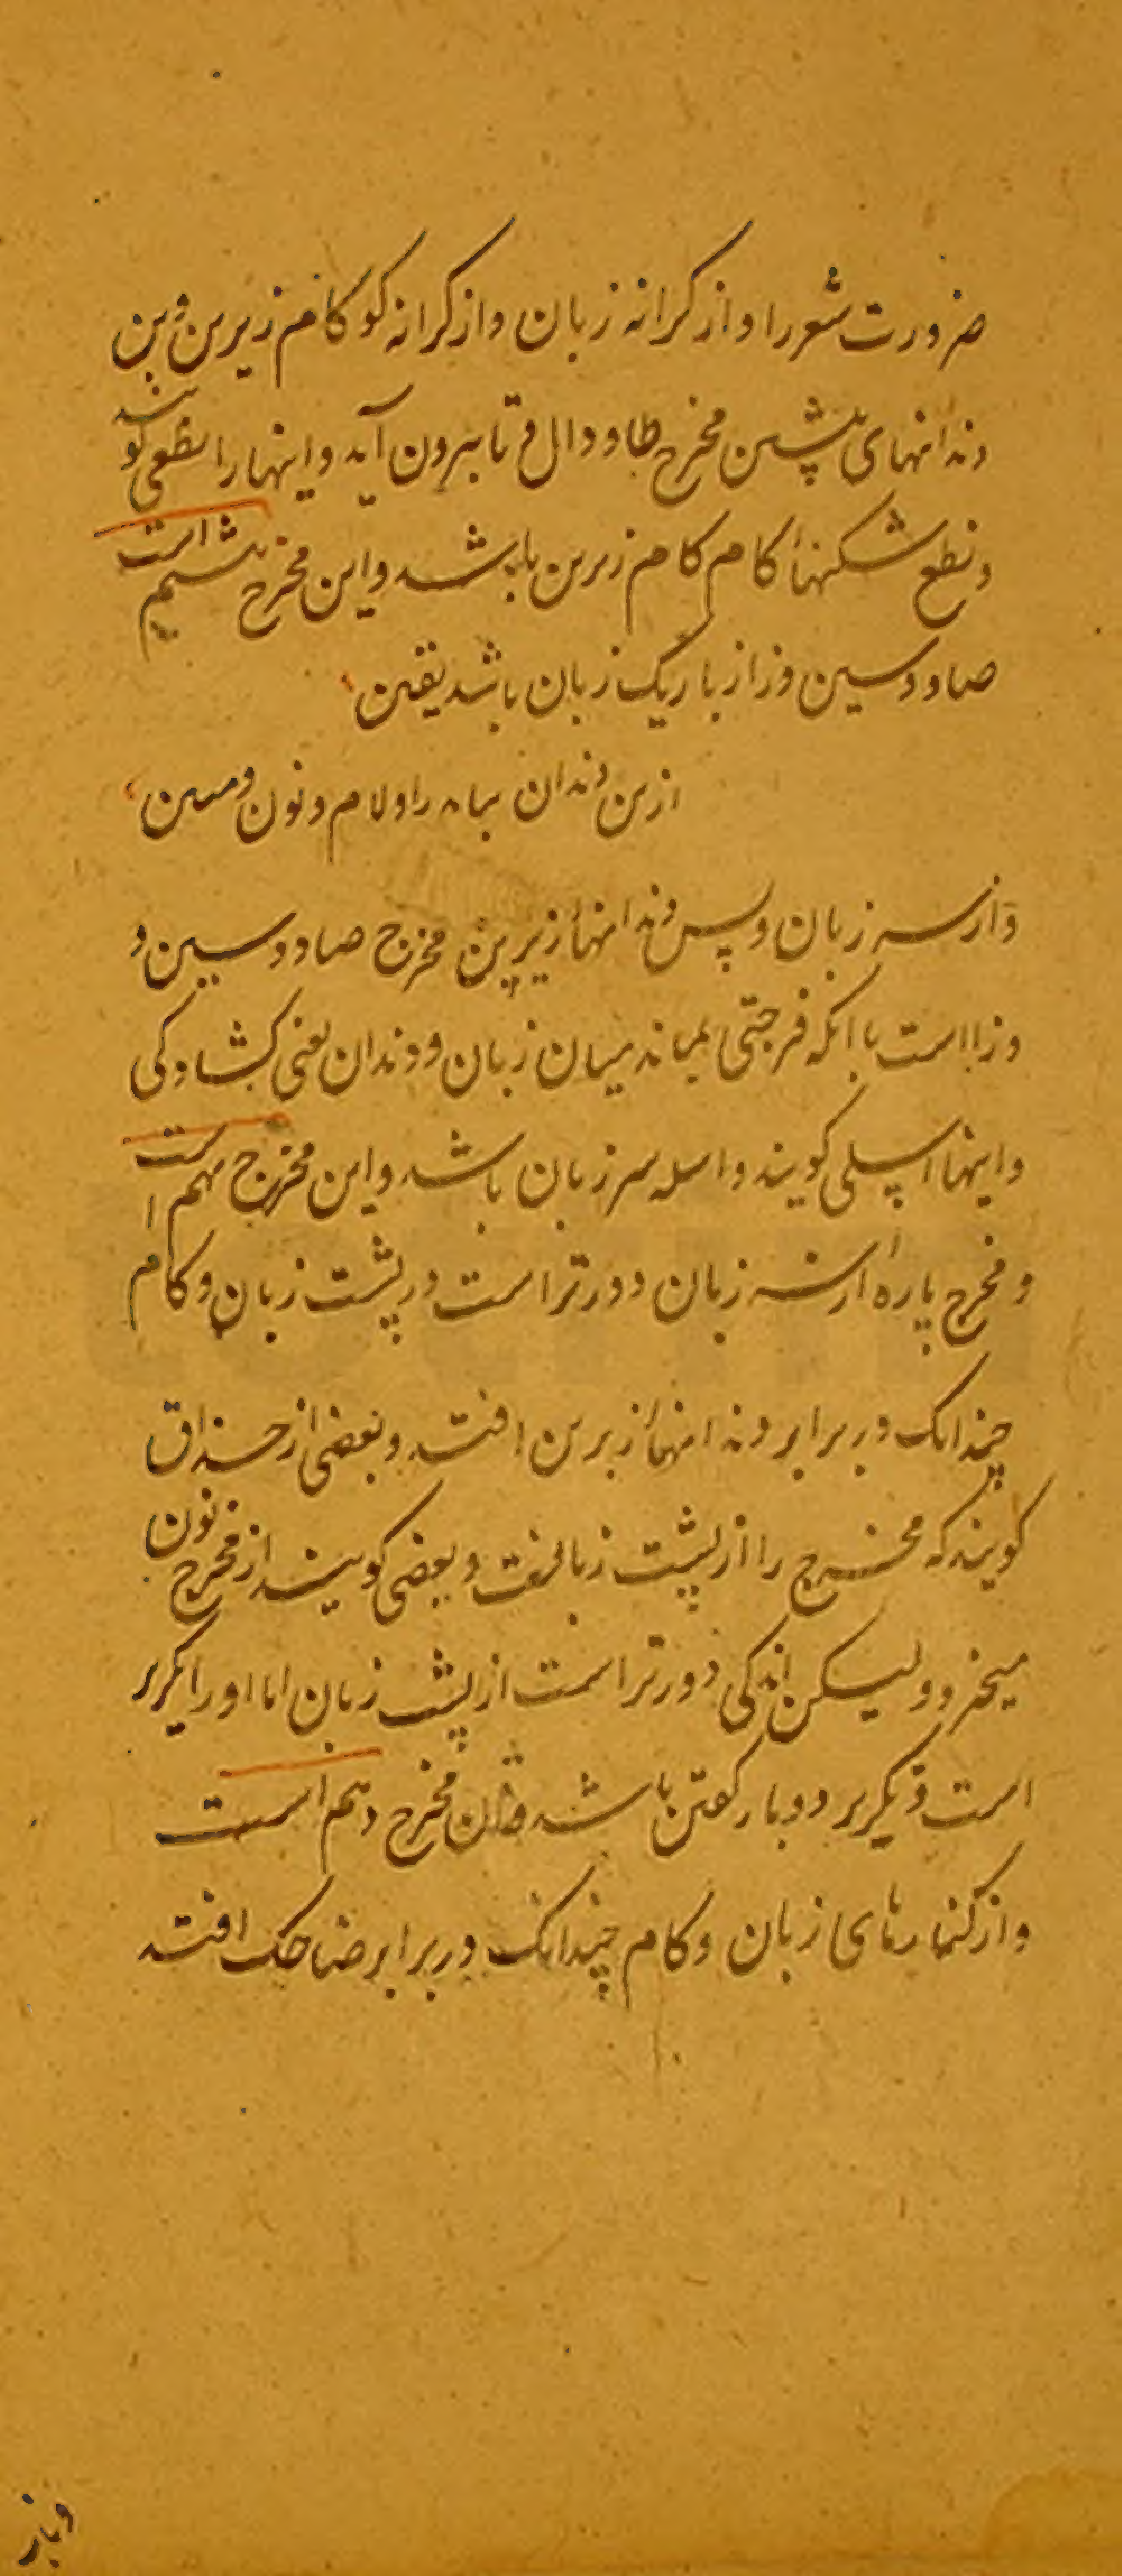 ضرورت شعر را و از کرانه زبان و از کرانه کو کام زیرین و بن
دندانهای پیشین مخرج طا و دال و تا بیرون آید و اینها را نطعی کویند
و نطع شکنهاء کام کام زبرین باشد و این مخرج هشتم است
صاد و سین و زا از باریک زبان باشد یقین
از بن دندان بیاید را و لام و نون و مبین
و از سر زبان و پس دندانهاء زیرین مخرج صاد و سین و
و زا است با انکه فرجتی بماند میان زبان و دندان یعنی کشادکی
و اینها اسلی کویند و اسله سر زبان باشد و این مخرج نهم است
و مخرج پاره از سر زبان دورتر است در پشت زبان و کام
چندانک در برابر دندانهاء زبرین افتد و بعضی از حذاق
کویند که مخرج را از پشت زبانست و بعضی کویند از مخرج نون
میخیزد و لیکن اندکی دورتر است از پشت زبان اما او را تکریر
است و تکریر دوبار کفتن باشد و این مخرج دهم است
و از کنارهای زبان و کام چندانک در برابر ضاحک افتد
و باز